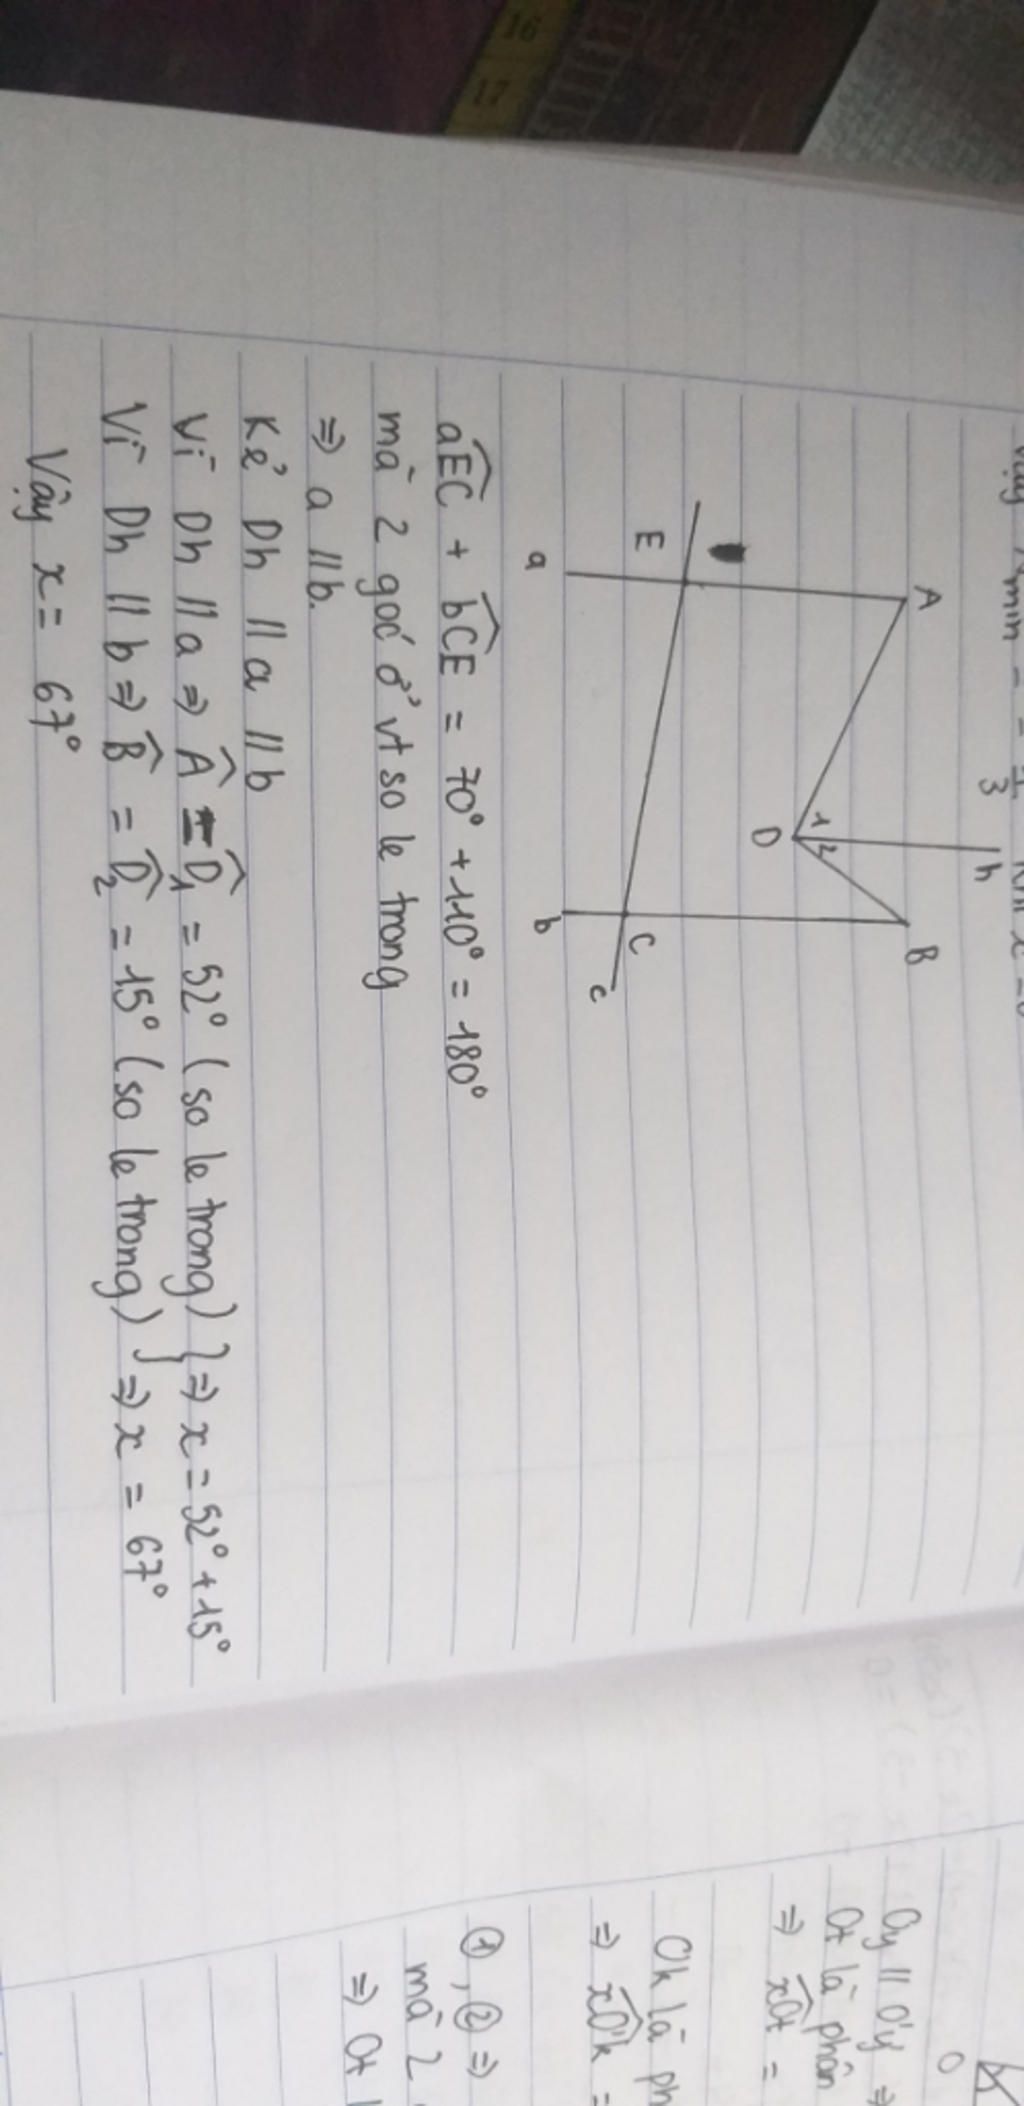 16
17
3
A
B
h
1
2
D
E
C
c
a
b
aEC + bCE = 70° + 110° = 180°
mà 2 góc ở vt so le trong
⇒ a // b.
Kẻ Dh // a // b
Vì Dh // a ⇒ Â = D̂₁ = 52° (so le trong) } ⇒ x = 52° + 15°
Vì Dh // b ⇒ B̂ = D̂₂ = 15° (so le trong) } ⇒ x = 67°
Vậy x = 67°
O
Oy // O'y' ⇒
Ot là phân
⇒ xOt =
O'k là ph
⇒ xO'k =
①, ② ⇒
mà 2
⇒ Ot